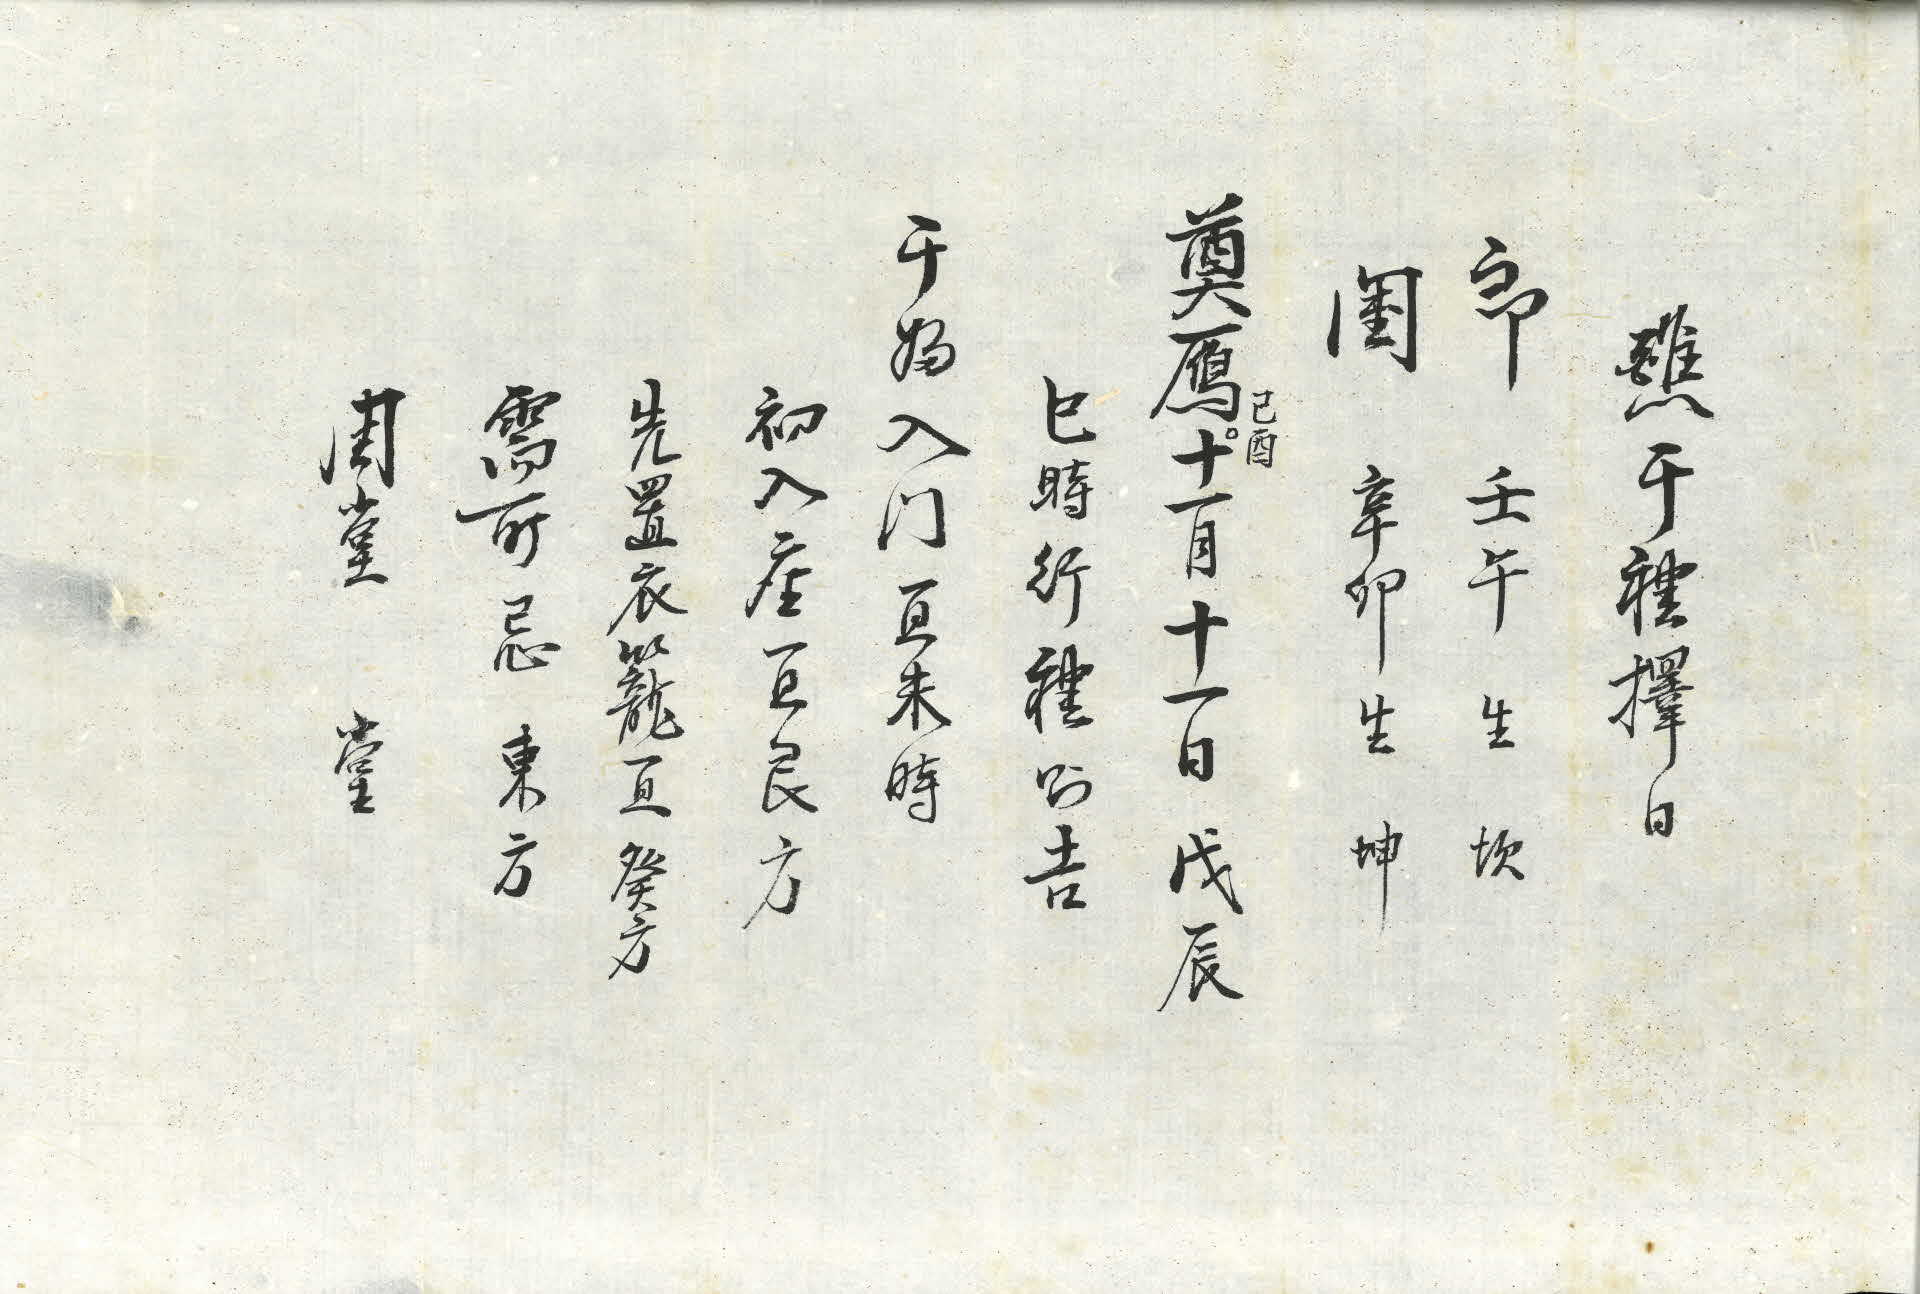 醮于禮擇日
郎 壬午生 坎
閨 辛卯生 坤
奠鴈己酉十一月十一日 戊辰
巳時行禮則吉
于婦入门宜未時
初入座宜艮方
先置衣籠宜癸方
所忌 東方
周堂 堂